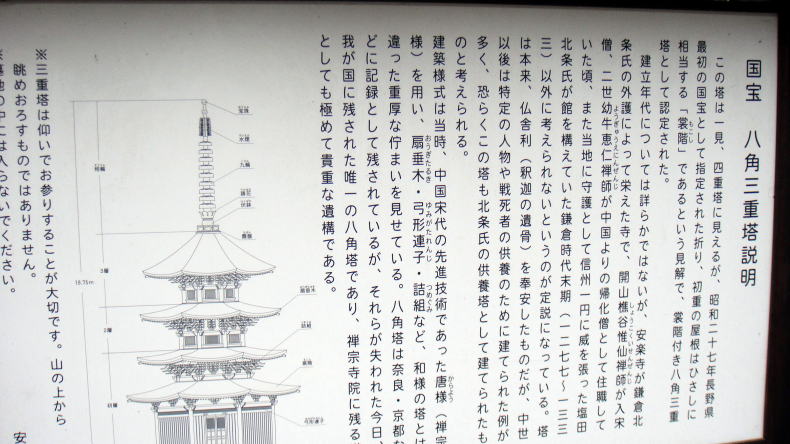 国宝 八角三重塔説明
この塔は一見、四重塔に見えるが、昭和二十七年長野県
最初の国宝として指定された折り、初重の屋根はひさしに
相当する「裳階」であるという見解で、裳階付き八角三重
もこし
塔として認定された。
建立年代については詳らかではないが、安楽寺が鎌倉北
条氏の外護によって栄えた寺で、開山樵谷惟仙禅師が入宋
しょうこくいせんぜんじ
僧、二世幼牛恵仁禅師が中国よりの帰化僧として住職して
ようぎゅうえにんぜんじ
いた頃、また当地に守護として信州一円に威を張った塩田
北条氏が館を構えていた鎌倉時代末期（一二七七～一三三
三）以外に考えられないというのが定説になっている。塔
は本来、仏舎利（釈迦の遺骨）を奉安したものだが、中世
以後は特定の人物や戦死者の供養のために建てられた例が
多く、恐らくこの塔も北条氏の供養塔として建てられたも
のと考えられる。
建築様式は当時、中国宋代の先進技術であった唐様（禅宗
からよう
様）を用い、扇垂木・弓形連子・詰組など、和様の塔とは
おうぎたるき
ゆみがたれんじ
つめぐみ
違った重厚な佇まいを見せている。八角塔は奈良・京都な
どに記録として残されているが、それらが失われた今日、
我が国に残された唯一の八角塔であり、禅宗寺院に残る
としても極めて貴重な遺構である。
宝珠
水煙
九輪
相輪
露盤
3層
18.75m
2層
初層
扇垂木
詰組
弓形連子
※三重塔は仰いでお参りすることが大切です。山の上から
眺めおろすものではありません。
※墓地の中には入らないでください。
安